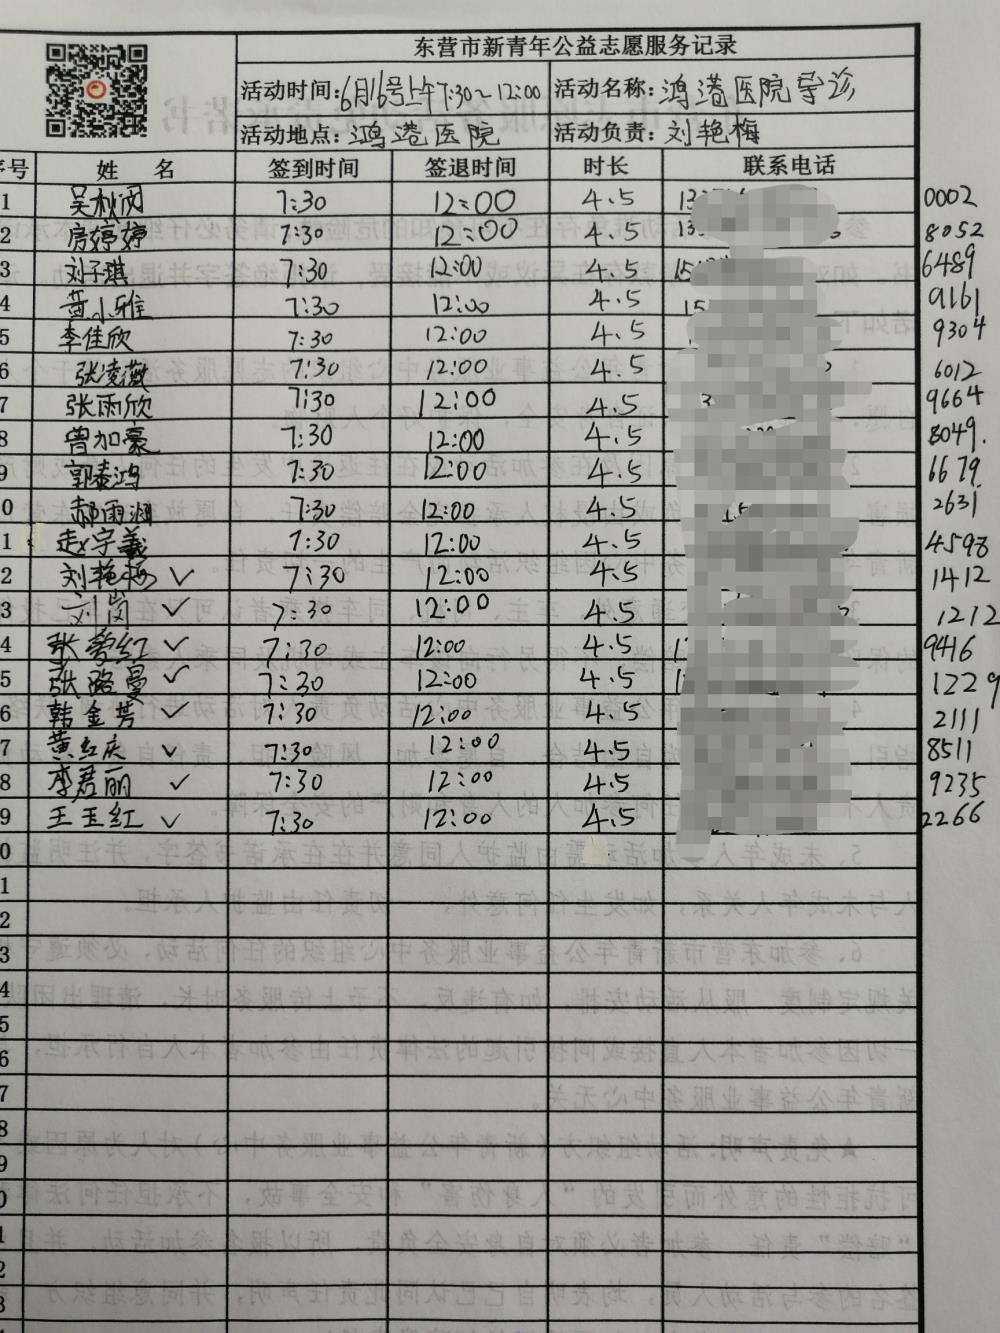 东营市新青年公益志愿服务记录
活动时间:6月16号上午7:30~12:00 活动名称:鸿港医院导诊
活动地点:鸿港医院 活动负责:刘艳梅
序号 姓 名 签到时间 签退时间 时长 联系电话
1 吴秋闵 7:30 12:00 4.5 0002
2 房婷婷 7:30 12:00 4.5 8052
3 刘子琪 7:30 12:00 4.5 6489
4 黄小雅 7:30 12:00 4.5 9161
5 李佳欣 7:30 12:00 4.5 9304
6 张凌薇 7:30 12:00 4.5 6012
7 张雨欣 7:30 12:00 4.5 9664
8 曾加豪 7:30 12:00 4.5 8049.
9 郭泰鸿 7:30 12:00 4.5 6679
0 郝雨润 7:30 12:00 4.5 2631
1 赵宇義 7:30 12:00 4.5 4598
2 刘艳梅 ✓ 7:30 12:00 4.5 1412
3 刘岗 ✓ 7:30 12:00 4.5 1212
4 张蒙红 ✓ 7:30 12:00 4.5 9416
5 张路曼 ✓ 7:30 12:00 4.5 1229
6 韩金芳 ✓ 7:30 12:00 4.5 2111
7 黄红庆 ✓ 7:30 12:00 4.5 8511
8 李君丽 ✓ 7:30 12:00 4.5 9235
9 王玉红 ✓ 7:30 12:00 4.5 2266
0
1
2
3
4
5
6
7
8
9
0
1
2
3